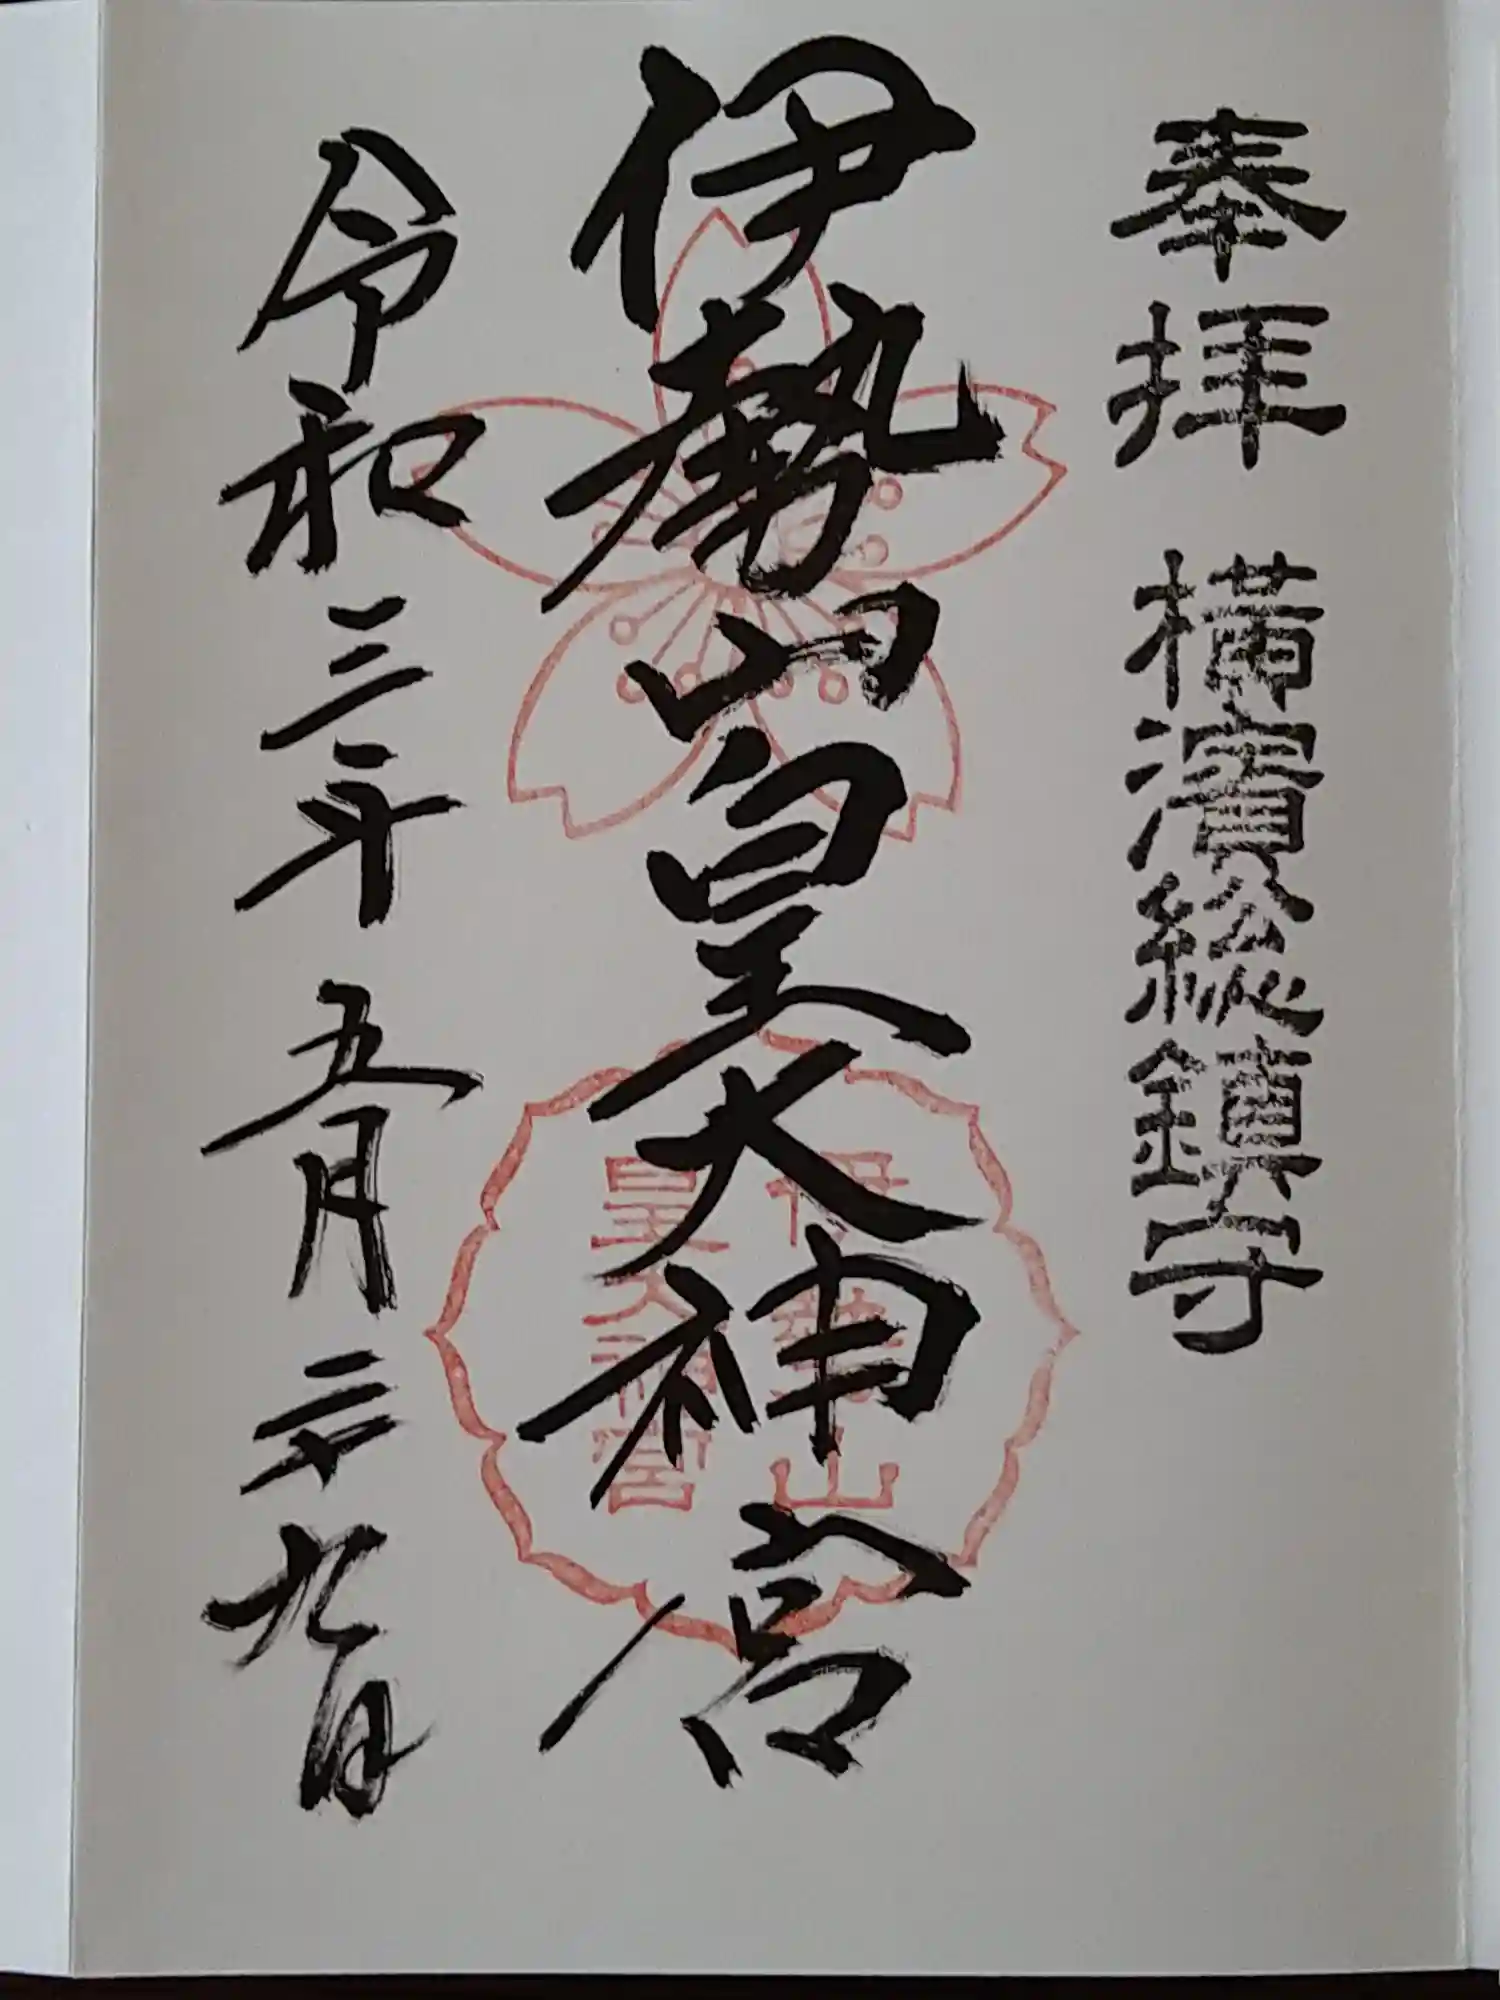 奉拝 横濱総鎮守
伊勢山皇大神宮
伊勢山
皇大神宮
令和三年五月二十九日